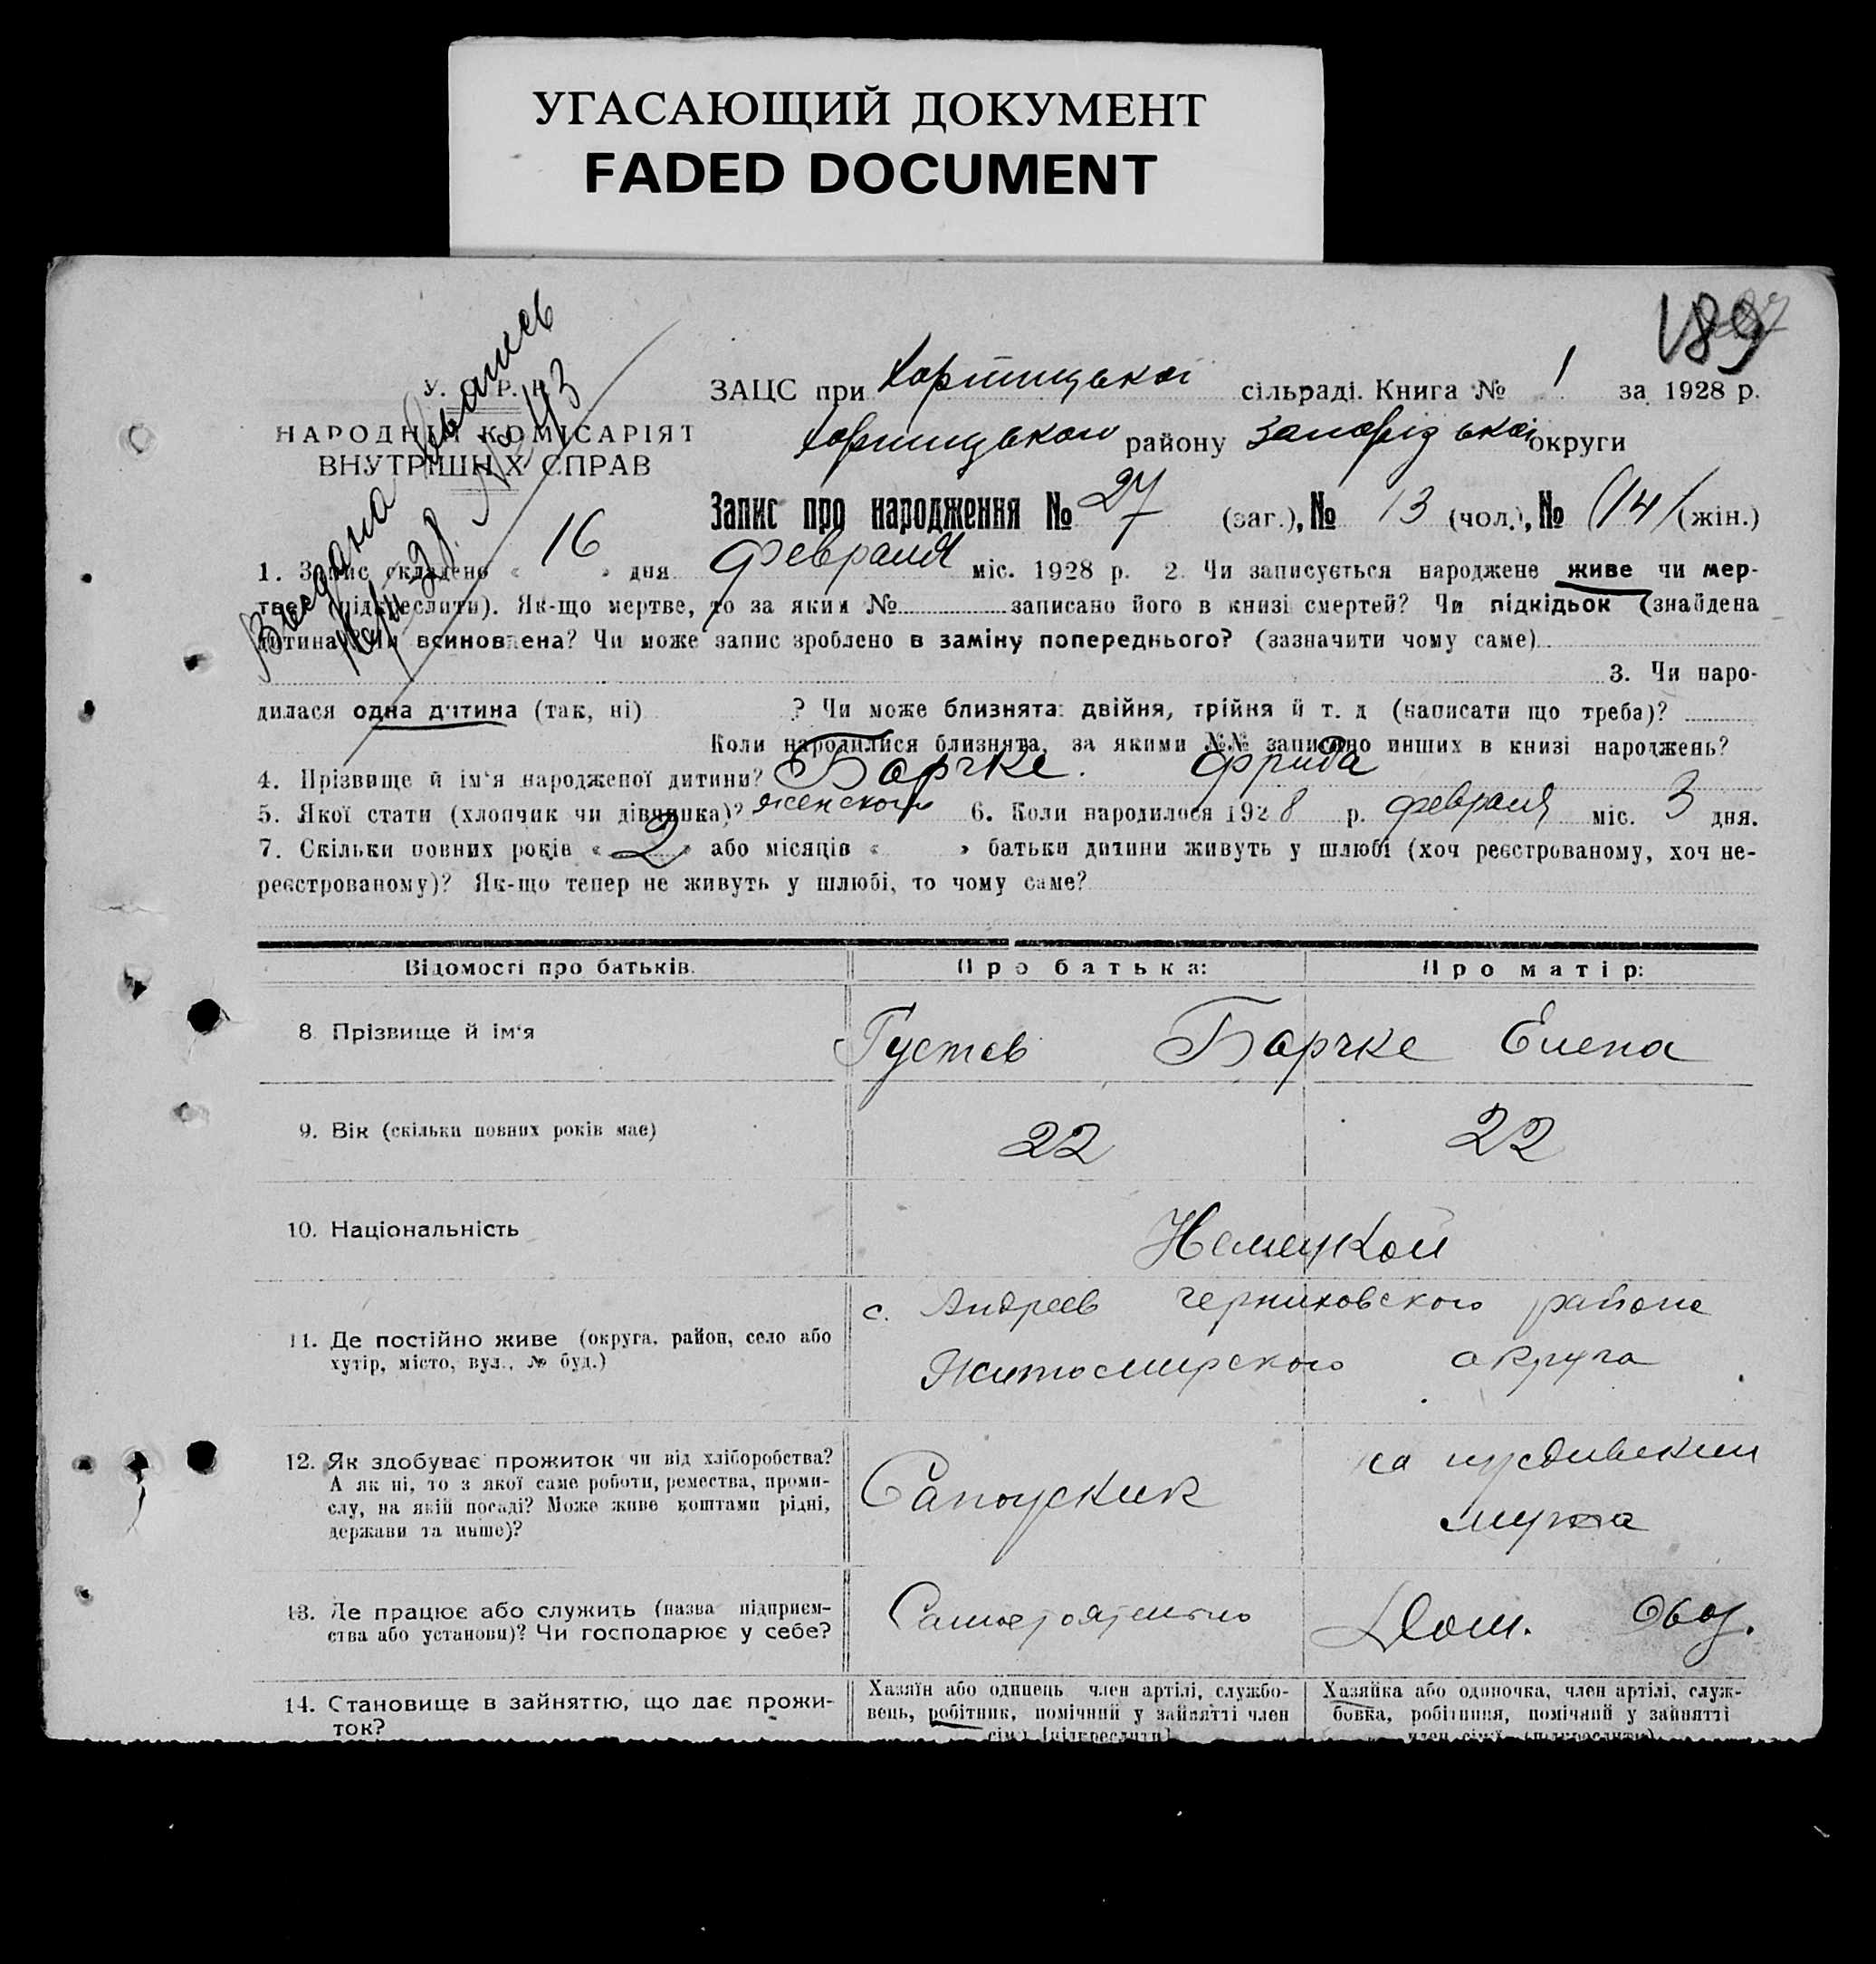 УГАСАЮЩИЙ ДОКУМЕНТ
FADED DOCUMENT
189
У. С. Р. Р.
НАРОДНІЙ КОМІСАРІЯТ
ВНУТРІШНІХ СПРАВ
№ 43
ЗАЦС при Хортицької сільраді. Книга № 1 за 1928 р.
Хортицького району Запорізької округи
Запис про народження № 27 (заг.), № 13 (чол.), № (14) (жін.)
1. Запис складено « 16 » дня февраля міс. 1928 р. 2. Чи записується народжене живе чи мер-
тве (підкреслити). Як-що мертве, то за яким № записано його в книзі смертей? Чи підкідьок (знайдена
дитина)? Чи всиновлена? Чи може запис зроблено в заміну попереднього? (зазначити чому саме)
3. Чи наро-
дилася одна дитина (так, ні) ? Чи може близнята: двійня, трійня й т. д (написати що треба)?
Коли народилися близнята, за якими №№ записано инших в книзі народжень?
4. Прізвище й ім‘я народженої дитини? Барчке. Фрида
5. Якої стати (хлопчик чи дівчинка)? женского 6. Коли народилося 1928 р. февраля міс. 3 дня.
7. Скільки повних років « 2 » або місяців « » батьки дитини живуть у шлюбі (хоч реєстрованому, хоч не-
реєстрованому)? Як-що тепер не живуть у шлюбі, то чому саме?
Відомості про батьків. Про батька: Про матір:
8. Прізвище й ім‘я Густав Барчке Елена
9. Вік (скільки повних років має) 22 22
10. Національність Немецкой
11. Де постійно живе (округа, район, село або
хутір, місто, вул., № буд.)
с. Андреев Черниховского района
Житомирского округа
12. Як здобуває прожиток чи від хліборобства?
А як ні, то з якої саме роботи, ремества, проми-
слу, на якій посаді? Може живе коштами рідні,
держави та инше)?
мужа
13. Де працює або служить (назва підприєм-
ства або установи)? Чи господарює у себе?
Самостоятельно Дом. Обяз.
14. Становище в зайняттю, що дає прожи-
ток?
Хазяїн або одинець член артілі, службо-
вець, робітник, помічний у зайнятті член
сім‘ї (підкреслити)
Хазяйка або одиночка, член артілі, служ-
бовка, робітниця, помічний у зайнятті
член сім‘ї (підкреслити)